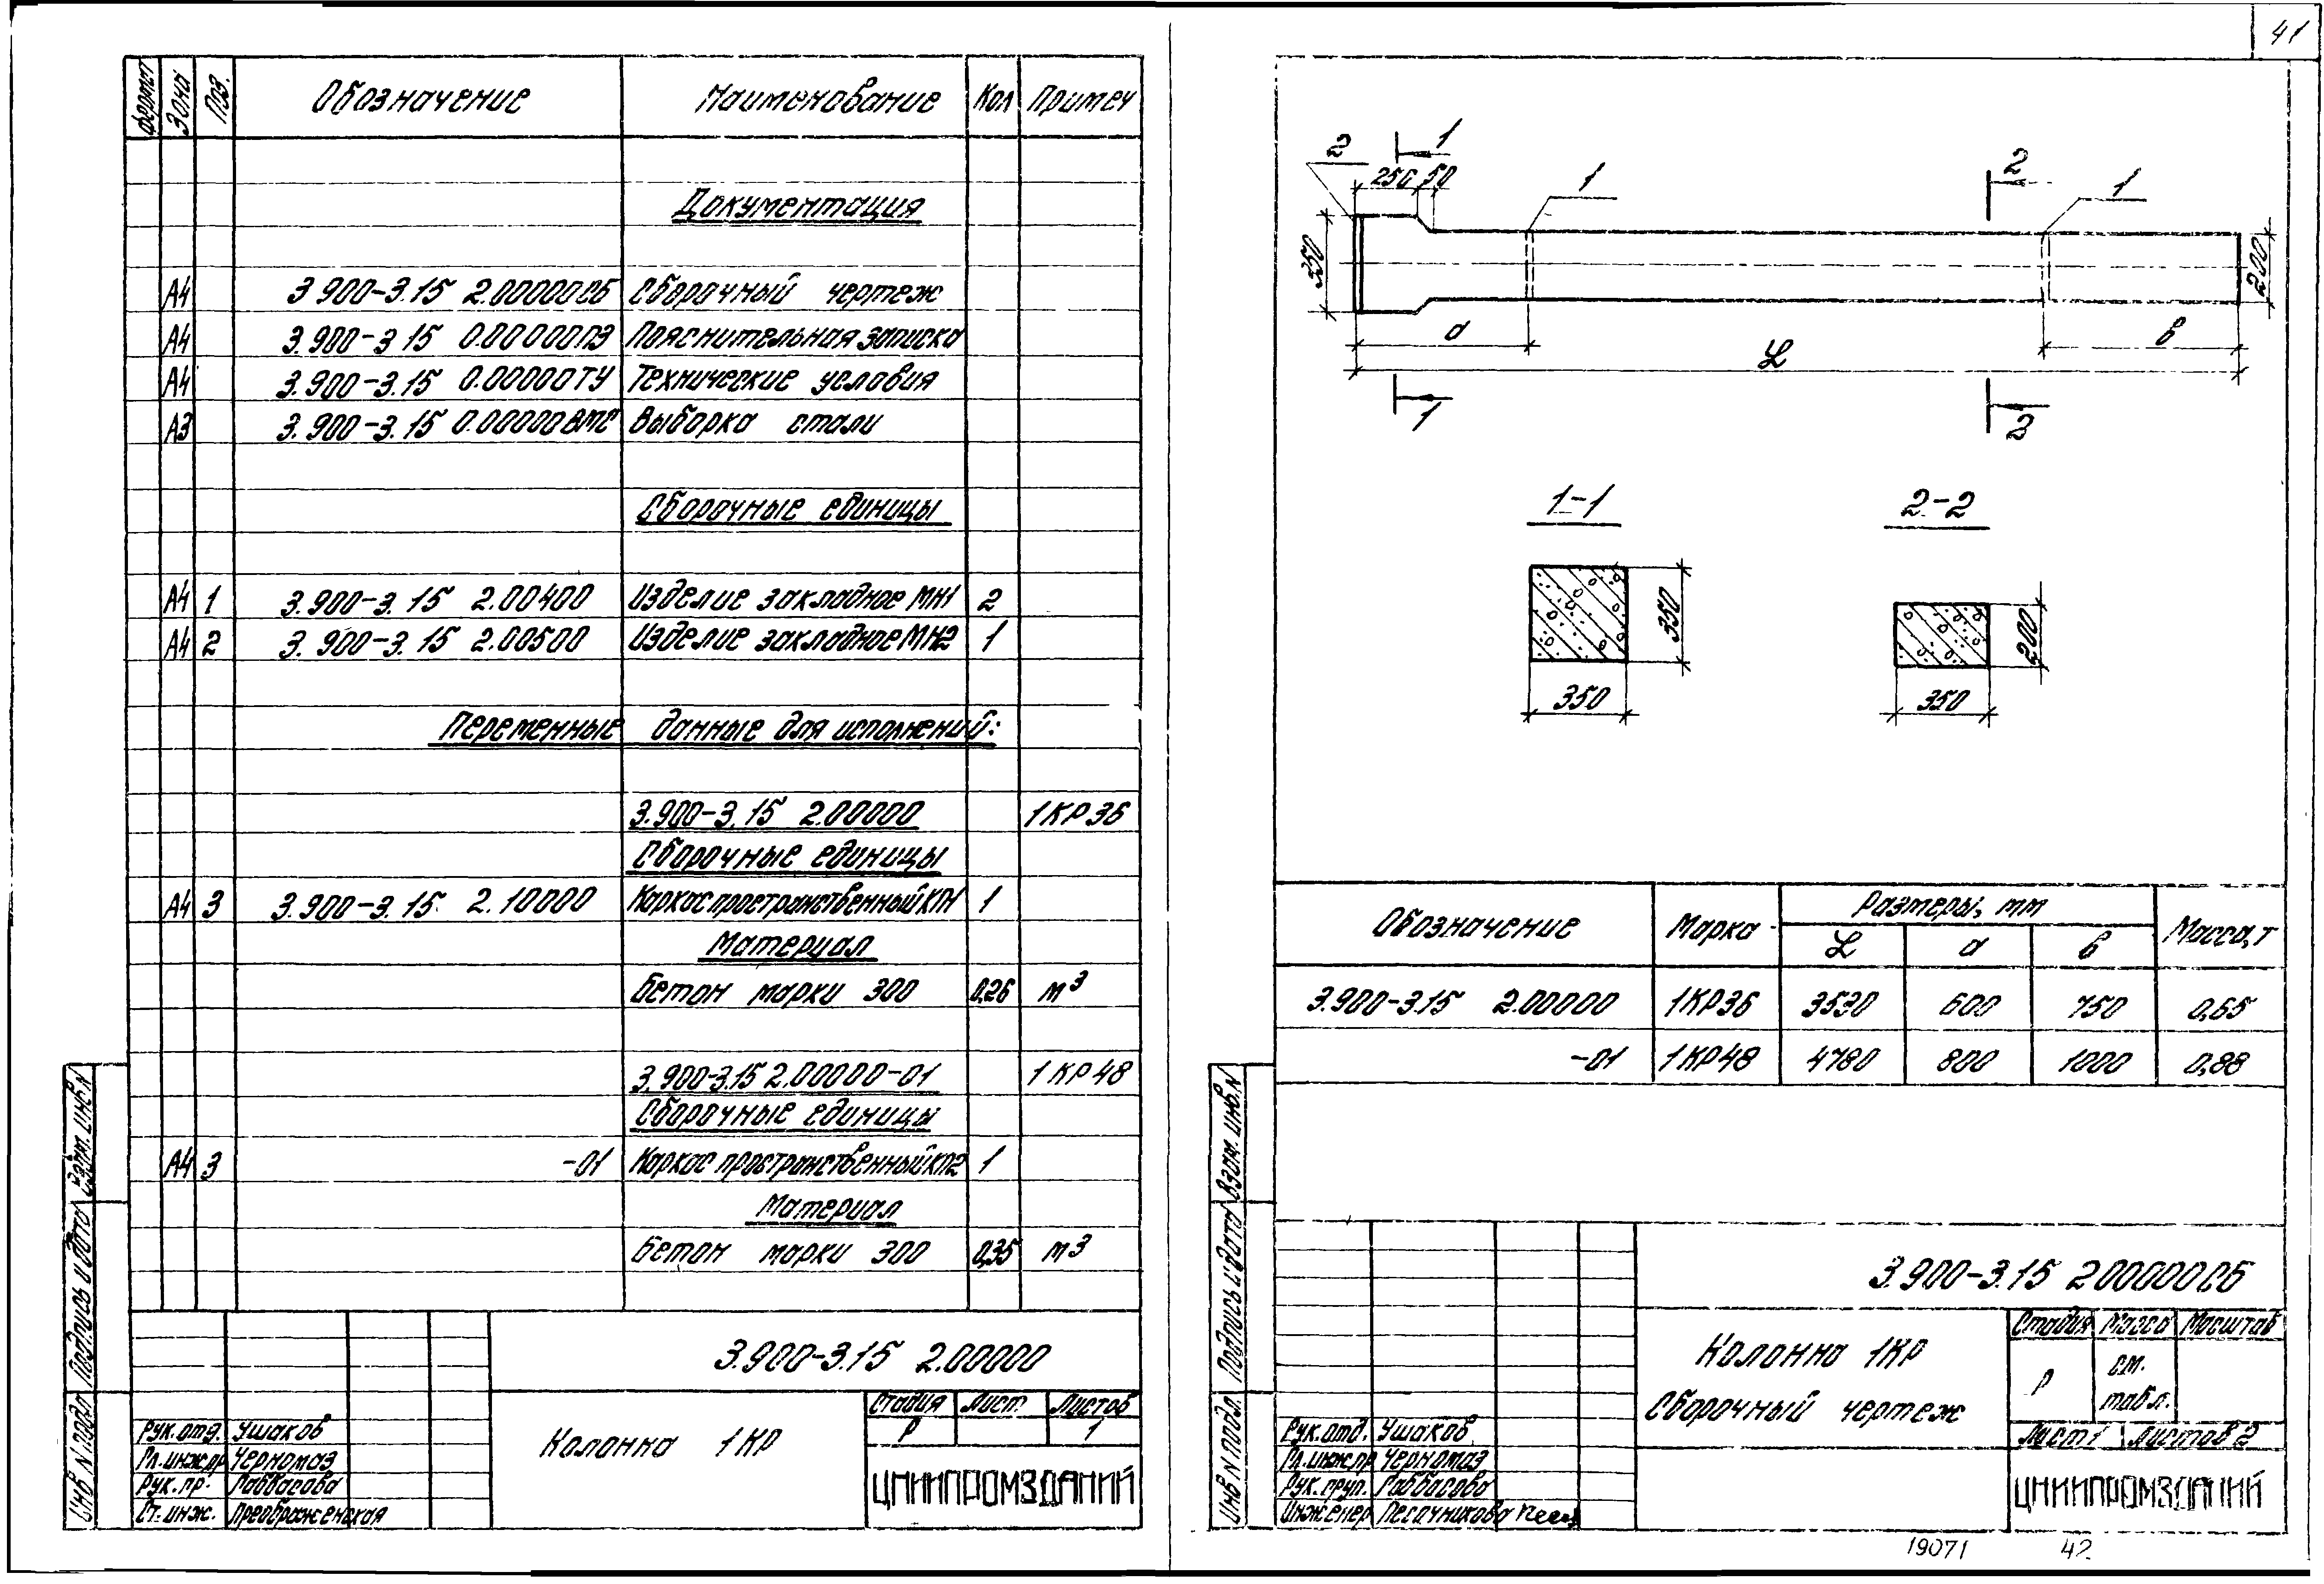 41
Формат Зона Поз. Обозначение Наименование Кол Примеч
Документация
А4 3 900-3.15 2.00000СБ Сборочный чертеж
А4 3.900-3 15 0.00000ПЗ Пояснительная записка
А4 3.900-3.15 0.00000ТУ Технические условия
А3 3.900-3.15 0.00000ВМС Выборка стали
Сборочные единицы
А4 1 3.900-3.15 2.00400 Изделие закладное МН1 2
А4 2 3.900-3.15 2.00500 Изделие закладное МН2 1
Переменные данные для исполнений:
3.900-3.15 2.00000 1КР36
Сборочные единицы
А4 3 3.900-3.15. 2.10000 Каркас пространственный КП1 1
Материал
Бетон марки 300 0,26 м3
3.900-3.15 2.00000-01 1КР48
Сборочные единицы
А4 3 -01 Каркас пространственный КП2 1
Материал
Бетон марки 300 0,35 м3
Взам. инв.N
Подпись и дата
Инв N подл
3.900-3.15 2.00000
Колонна 1КР
Стадия Лист Листов
Р 1
ЦНИИПРОМЗДАНИЙ
Рук.отд. Ушаков
Гл.инж.пр Черномаз
Рук.пр. Габбасова
Ст.инж. Преображенская
2 1 2
250 50 1 1
350 200
а в
L
1 2
1-1 2-2
350 200
350 350
Обозначение Марка Размеры, мм Масса,т
L а в
3.900-3.15 2.00000 1КР36 3530 600 750 0,65
-01 1КР48 4780 800 1000 0,88
Взам. инв.N
Подпись и дата
Инв N подл.
3.900-3.15 200000СБ
Колонна 1КР
Сборочный чертеж
Стадия Масса Масштаб
Р см. табл.
Лист 1 Листов 2
ЦНИИПРОМЗДАНИЙ
Рук.отд. Ушаков
Гл.инж.пр Черномаз
Рук.груп. Габбасова
Инженер Песочникова
19071 42